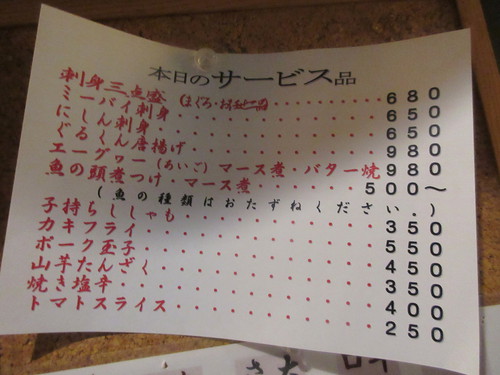 本日のサービス品
刺身三点盛 (まぐろ・ 680
ミーバイ刺身 650
にしん刺身 650
ぐるくん唐揚げ 980
エーグヮー(あいご)マース煮・バター焼 980
魚の頭煮つけ マース煮 500〜
(魚の種類はおたずねください.)
子持ちししゃも 350
カキフライ 550
ポーク玉子 450
山芋たんざく 350
焼き塩辛 400
トマトスライス 250